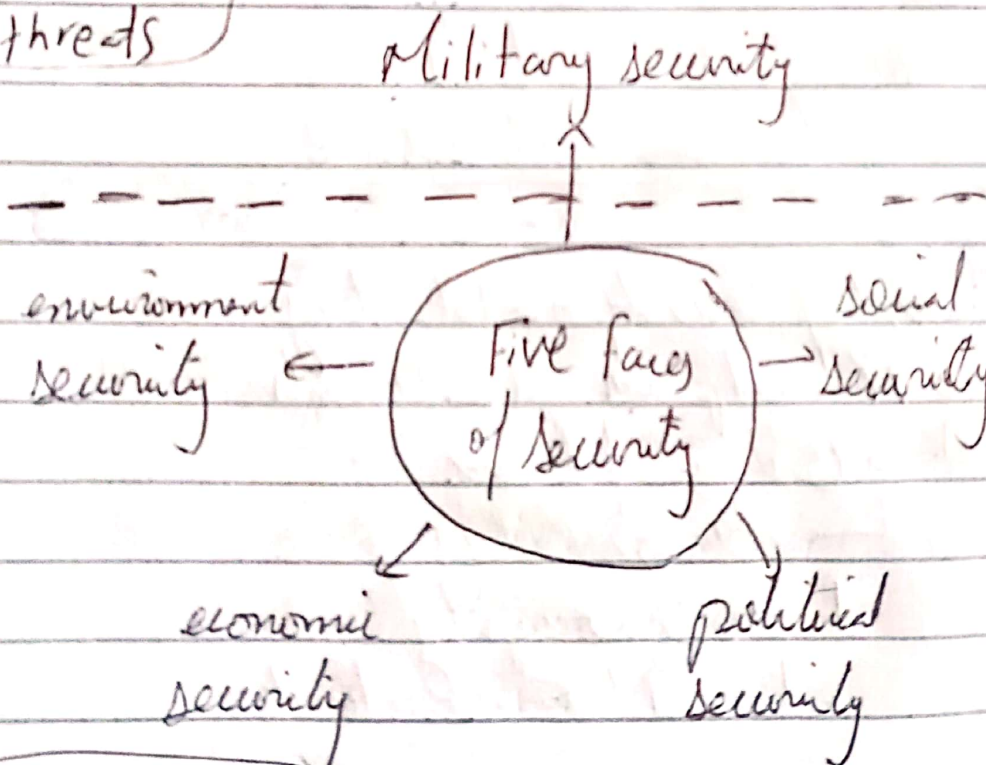 threats
Military security
environment
security
Five faces
of security
social
security
economic
security
political
security